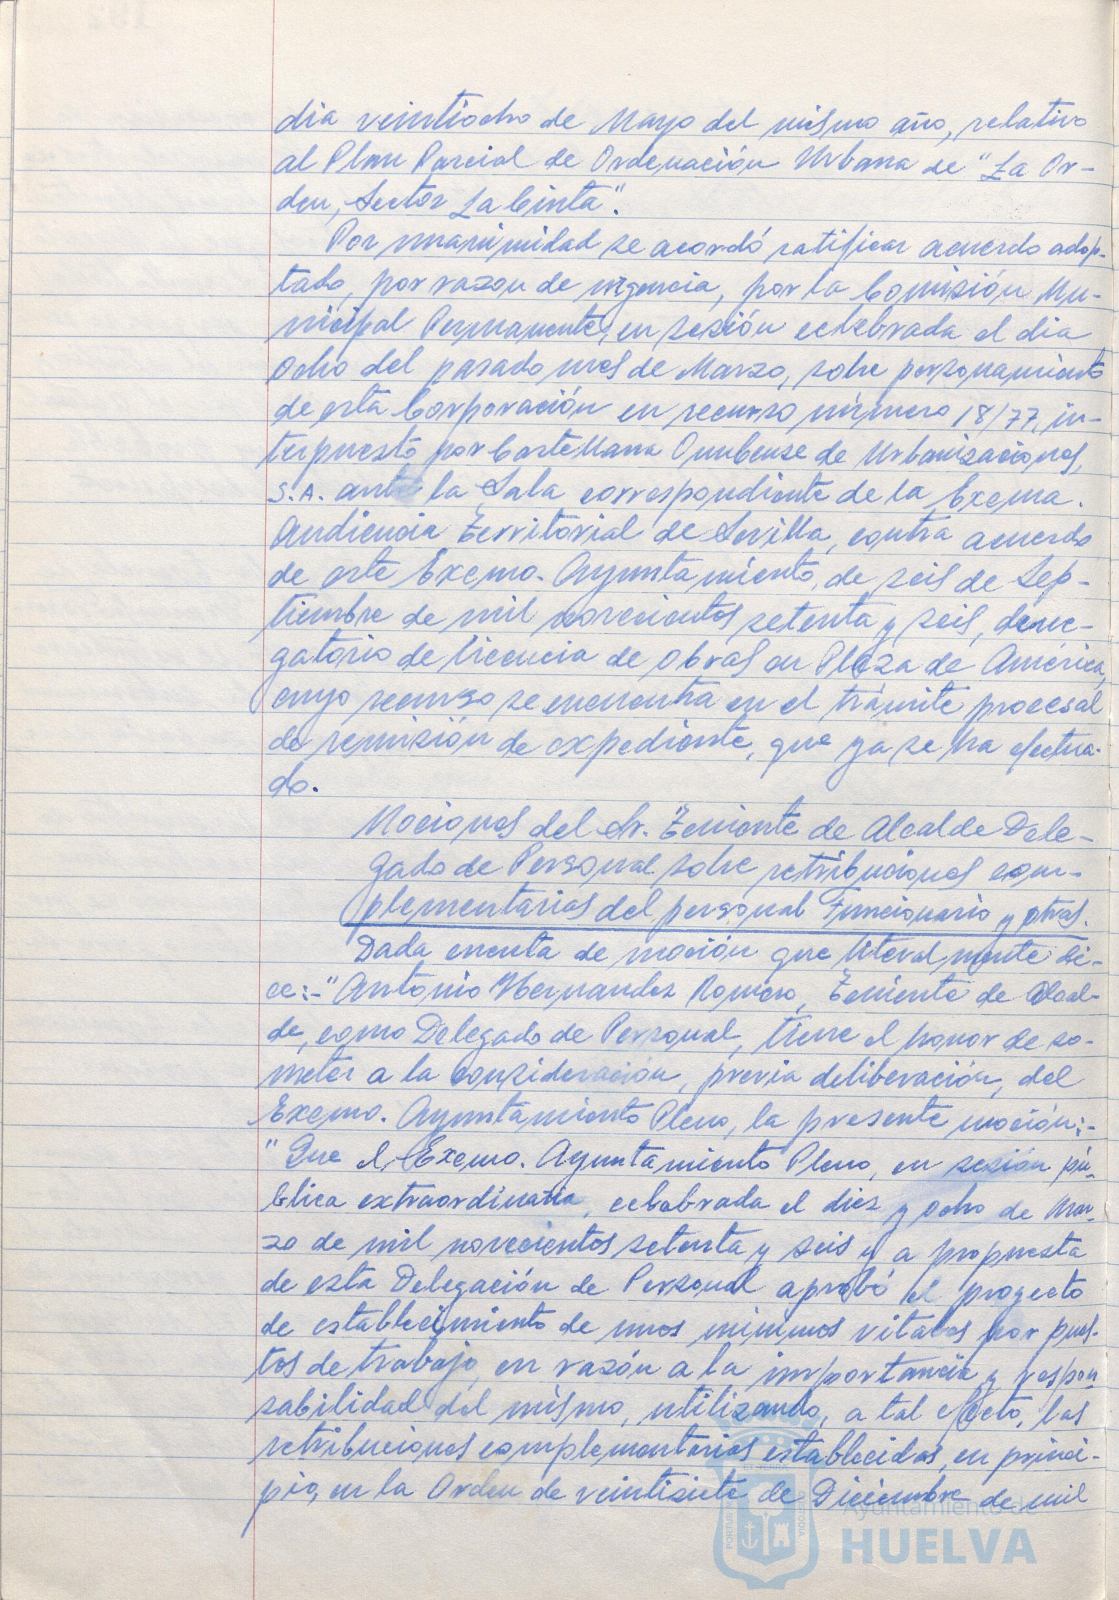 dia veintiocho de Mayo del mismo año, relativo
al Plan Parcial de Ordenación Urbana de "La Or-
den, Sector La Cinta".
Por unanimidad se acordó ratificar acuerdo adop-
tado, por razon de urgencia, por la Comisión Mu-
nicipal Permanente, en sesión celebrada el dia
ocho del pasado mes de Marzo, sobre personamiento
de esta Corporación en recurso número 18/77, in-
terpuesto por Castellana Onubense de Urbanizaciones,
S.A. ante la Sala correspondiente de la Excma.
Audiencia Territorial de Sevilla, contra acuerdo
de este Excmo. Ayuntamiento, de seis de Sep-
tiembre de mil novecientos setenta y seis, dene-
gatorio de licencia de obras en Plaza de América,
cuyo recurso se encuentra en el trámite procesal
de remisión de expediente, que ya se ha efectua-
do.
Mociones del Sr. Teniente de Alcalde Dele-
gado de Personal sobre retribuciones com-
plementarias del personal Funcionario y otras.
Dada cuenta de moción que literalmente di-
ce:-"Antonio Hernandez Romero, Teniente de Alcal-
de, como Delegado de Personal, tiene el honor de so-
meter a la consideración, previa deliberación, del
Excmo. Ayuntamiento Pleno, la presente moción:-
"Que el Excmo. Ayuntamiento Pleno, en sesión pú-
blica extraordinaria, celebrada el diez y ocho de Mar-
zo de mil novecientos setenta y seis y a propuesta
de esta Delegación de Personal aprobó el proyecto
de establecimiento de unos mínimos vitales por pues-
tos de trabajo, en razón a la importancia y respon-
sabilidad del mismo, utilizando, a tal efecto, las
retribuciones complementarias establecidas, en princi-
pio, en la Orden de veintisiete de Diciembre de mil
Ayuntamiento de
HUELVA